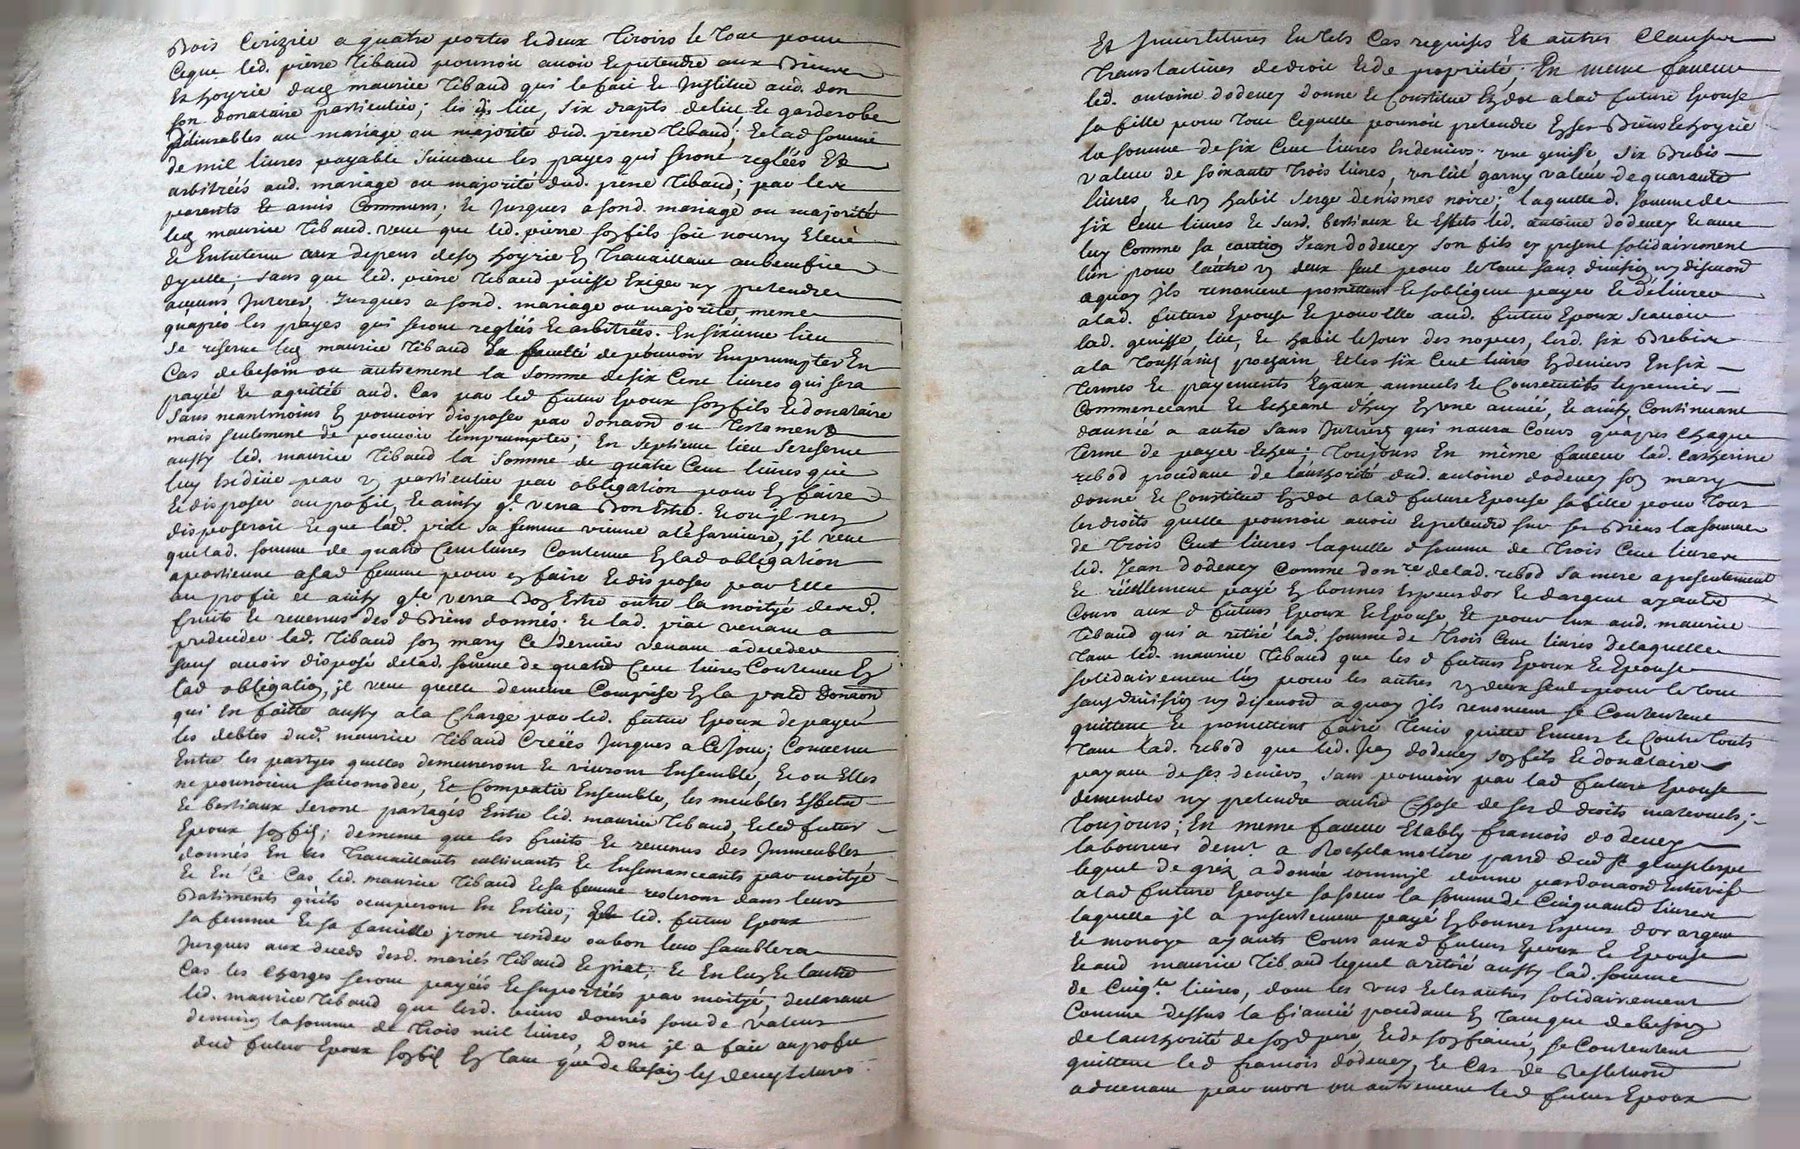 Bois Cerizier a quatre portes et deux tiroirs le tout pour
ceque led. pierre Tibaud pourroit avoir et pretendre aux Biens
et hoyrie dud. maurice Tibaud qui le fait et Institue aud. don
son donataire particulier; les d. lict, six drapts de lict et garderobe
delivrables au mariage ou majorité dud. pierre Tibaud; et lad somme
de mil livres payable suivant les payes qui seront reglées et
arbitrées aud. mariage ou majorité dud. pierre Tibaud; par les
parents et amis Communs; et Jusques a sond. mariage ou majorité
led. maurice Tibaud. veut que led. pierre son fils soit nourry Elevé
et Entretenu aux depens de son hoyrie En Travaillant au benefice
dycelle; sans que led. pierre Tibaud puisse Exiger ny pretendre
aucuns Interets, Jusques a sond. mariage ou majorité meme
qu'après les payes qui seront reglées et arbitrées. En sixieme lieu
se reserve led. maurice Tibaud la faculté de pouvoir Emprumpter En
Cas de besoin ou autrement la somme de six Cent livres qui sera
payée et aquitée aud. Cas par led futur Epoux son fils et donataire
sans neantmoins En pouvoir disposer par donaon ou Testament
mais seulement de pouvoir l'emprumpter; En septieme lieu se reserve
aussy led. maurice Tibaud la somme de quatre Cent livres qui
luy est düe par un particulier par obligation pour En faire
et disposer au profit et ainsy q. verra Bon Estre. et ou il n'en
disposeroit et que lad. piat sa femme vienne a le survivre, il veut
que lad. somme de quatre Cent livres Contenue En lad obligation
apartienne a sad femme pour en faire et disposer par Elle
au profit et ainsy qlle verra Bon Estre outre la moityé desd.
fruits et revenus des d Biens donnés. et lad. piat venant a
predeceder led. Tibaud son mary Ce dernier venant a deceder
sans avoir disposé de lad. somme de quatre Cent livres Contenue En
lad obligation, il veut quelle demeure Comprise En la pnte Donaon
qui est faitte aussy a la Charge par led. futur Epoux de payer
les debtes dud. maurice Tibaud Creées Jusques a Ce Jour; Convenu
Entre les partyes quelles demeureront et vivront Ensemble, et ou Elles
ne pourroient saccomoder, et Compatir Ensemble, les meubles Effets
et bestiaux seront partagés Entre led. maurice Tibaud, et led futur
Epoux son fils; de meme que les fruits et revenus des Immeubles
donnés En les Travaillants cultivants et Ensemanceants par moityé
et En Ce Cas led. maurice Tibaud et sa femme resteront dans leurs
Batiments qu'ils occuperont En Entier; et led. futur Epoux
sa femme et sa famille iront resider ou bon leur semblera
Jusques aux deceds desd. mariés Tibaud et piat; et En luy et l'autre
Cas les Charges seront payées et suportées par moityé, declarant
led. maurice Tibaud que lesd. biens donnés sont de valeur
denviron la somme de Trois mil livres, Dont il a fait au profit
dud futur Epoux son fils En tant que de besoin les devestitures
Et Investitures En tels Cas requises Et autres Clauses
Translatives de droit et de propriété. En meme faveur
led. antoine dodevey donne et Constitue En dot a lad future Epouse
sa fille pour tout Cequelle pourroit pretendre En ses Biens et hoyrie
la somme de six Cent livres En deniers. une genisse, six Brebis
valeur de soixante trois livres, un lict garny valeur de quarante
livres, et un habit serge de nismes noire; laquelle d. somme de
six Cent livres et susd. bestiaux et Effets led. antoine dodevey et avec
luy Comme sa caution Jean dodevey son fils cy present solidairement
l'un pour l'autre un deux seul pour le tout sans division ny discuon
aquoy ils renoncent promettent et sobligent payer et délivrer
a lad. future Epouse et pour elle aud. futur Epoux scavoir
lad. genisse, lict, et habit le Jour des nopces, lesd. six Brebis
a la Toussaint prochain Et les six Cent livres En deniers En six
termes et payements Egaux annuels et Consecutifs le premier
Commenceant et Echeant d'huy En une année, et ainsy Continuant
d'année a autre sans Interets qui naura Cours qu'apres chaque
terme de payer Echeu; Toujours En même faveur lad. Catherine
rebod procedant de l'authorité dud. antoine dodevey son mary
donne et Constitue En dot a lad future Epouse sa fille pour tous
les droits quelle pourroit avoir et pretendre sur ses Biens la somme
de Trois Cent livres laquelle d somme de Trois Cent livres
led. Jean dodevey Comme donre de lad. rebod sa mere a presentement
et reëllement payé En bonnes Especes d'or et d'argent ayants
Cours aux d futurs Epoux et Epouse, et pour Eux aud. maurice
Tibaud qui a retiré lad. somme de Trois Cent livres de laquelle
tant led. maurice Tibaud que les d futurs Epoux et Epouse
solidairement l'un pour les autres un deux seul pour le tout
sans division ny discuond a quoy ils renoncent se Contentent
quittent et promettent faire tenir quitte Envers et Contre touts
tant lad. rebod que led. Jean dodevey son fils et donataire
payant de ses deniers, sans pouvoir par lad future Epouse
demander ny pretendre autre Chose de ses d droits maternels;
Toujours; En meme faveur Etably francois dodevey
laboureur demt a Rochelamoliere parr dud St genest lerpt
lequel de gré a donné comme il donne par donaon Entrevifs
a lad future Epouse sa soeur la somme de Cinquante livres
laquelle il a presentement payé En bonnes Especes d'or argent
et monoye ayants Cours aux d futurs Epoux et Epouse
et aud maurice Tibaud lequel a retiré aussy lad. somme
de Cinqte livres, dont les uns et les autres solidairement
Comme dessus la fiancée procedant En tant que de besoin
de l'authorité de son d pere, et de son fiancé, se Contentent
quittent led francois dodevey, et Cas de Restituon
advenant par mort ou autrement led futur Epoux